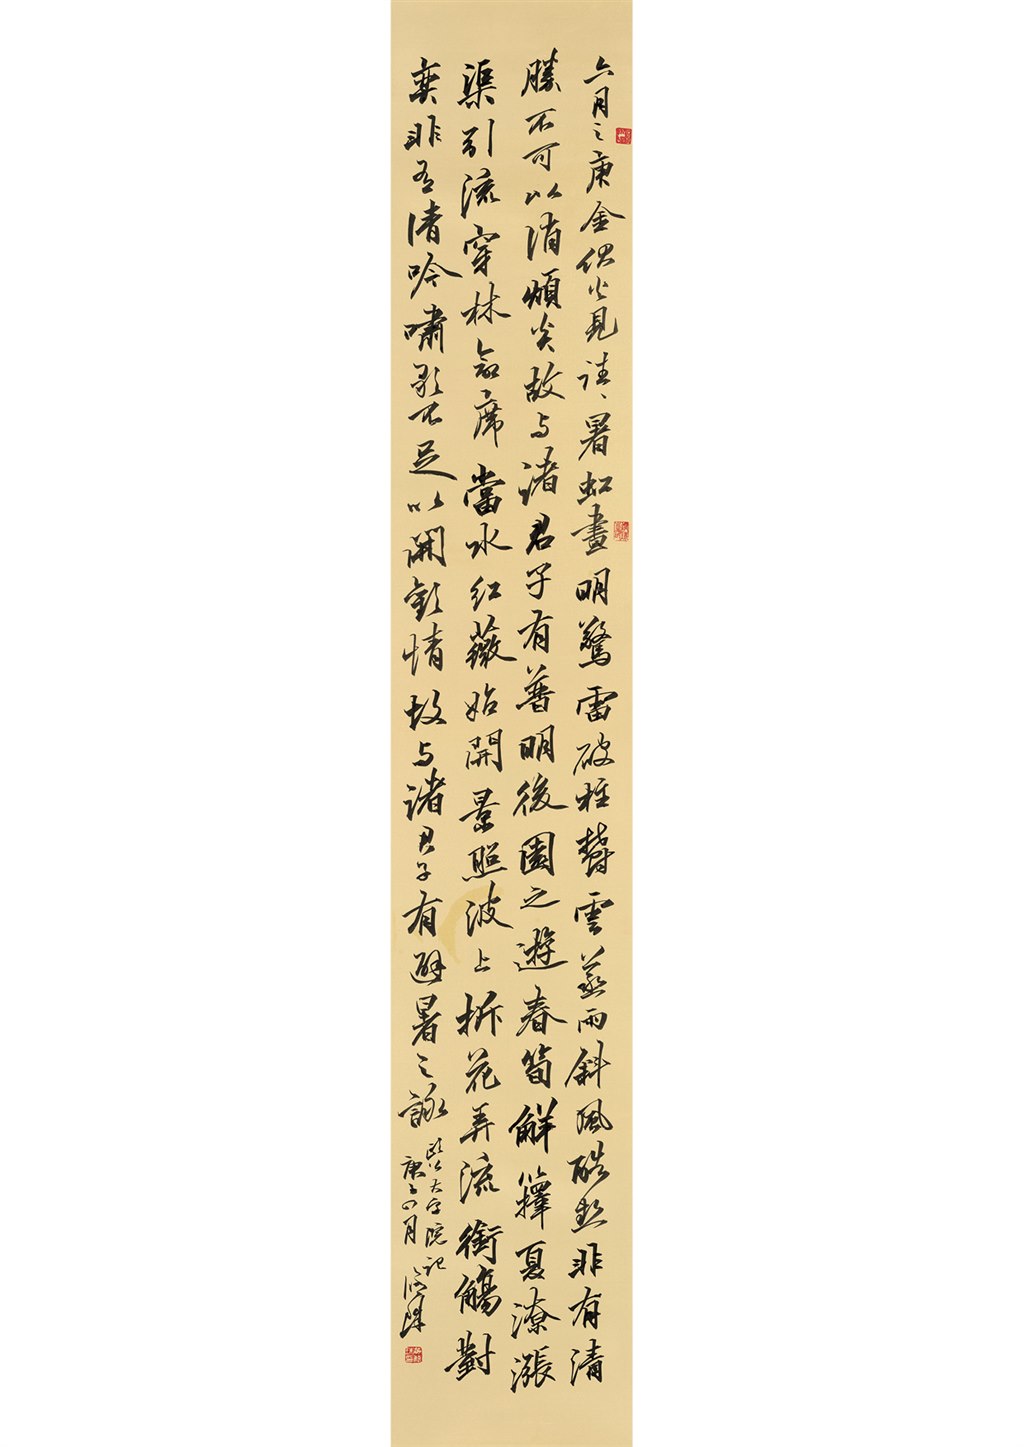 六月之庚金伏火見往〻暑虹晝明驚雷破柱鬱雲蒸雨斜風酷熱非有清
勝不可以消煩炎故与諸君子有普明後園之遊春筍解籜夏潦漲
渠引流穿林命席當水紅薇始開景照波上折花弄流銜觴對
奕非有清吟嘯歌不足以開歡情故与諸君子有避暑之詠
歐公大字院記
庚子四月